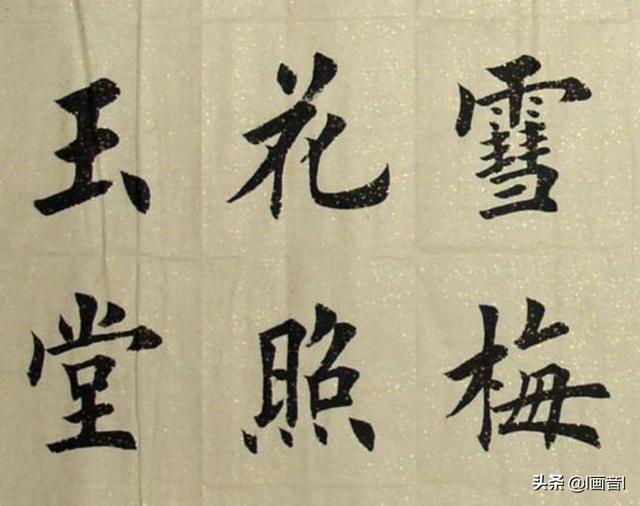 雪梅
花照
玉堂
头条 @I画音I